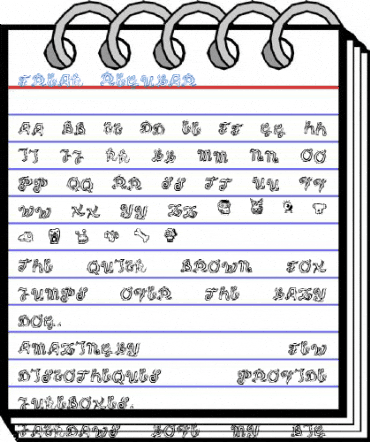 TREAT REGULAR
AA BB CC DD EE FF GG HH
II JJ KK LL MM NN OO
PP QQ RR SS TT UU VV
WW XX YY ZZ
THE QUICK BROWN FOX
JUMPS OVER THE LAZY
DOG.
AMAZINGLY FEW
DISCOTHEQUES PROVIDE
JUKEBOXES.
JACKDAWS LOVE MY BIG